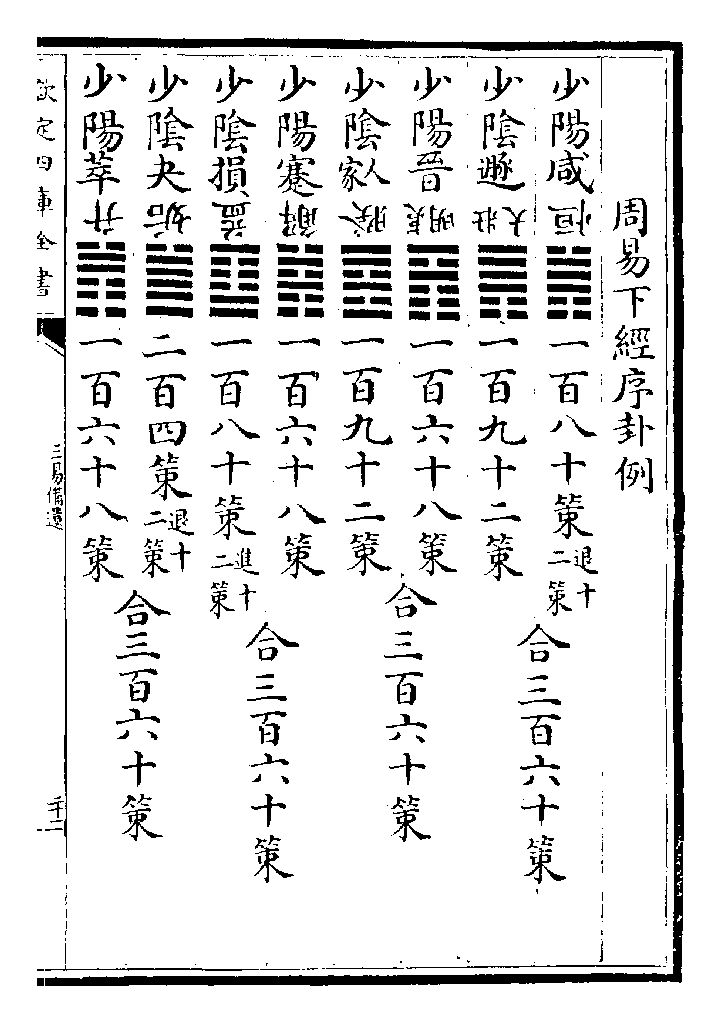 周易下經序卦例
少陽咸恒一百八十策退十二策
少陰遯大壯一百九十二策
合三百六十策
少陽晉明夷一百六十八策
少陰家人睽一百九十二策
合三百六十策
少陽蹇解一百六十八策
少陰損益一百八十策進十二策
合三百六十策
少陰夬姤二百四策退十二策
少陽萃升一百六十八策
合三百六十策
欽定四庫全書
三易備遺
二十二